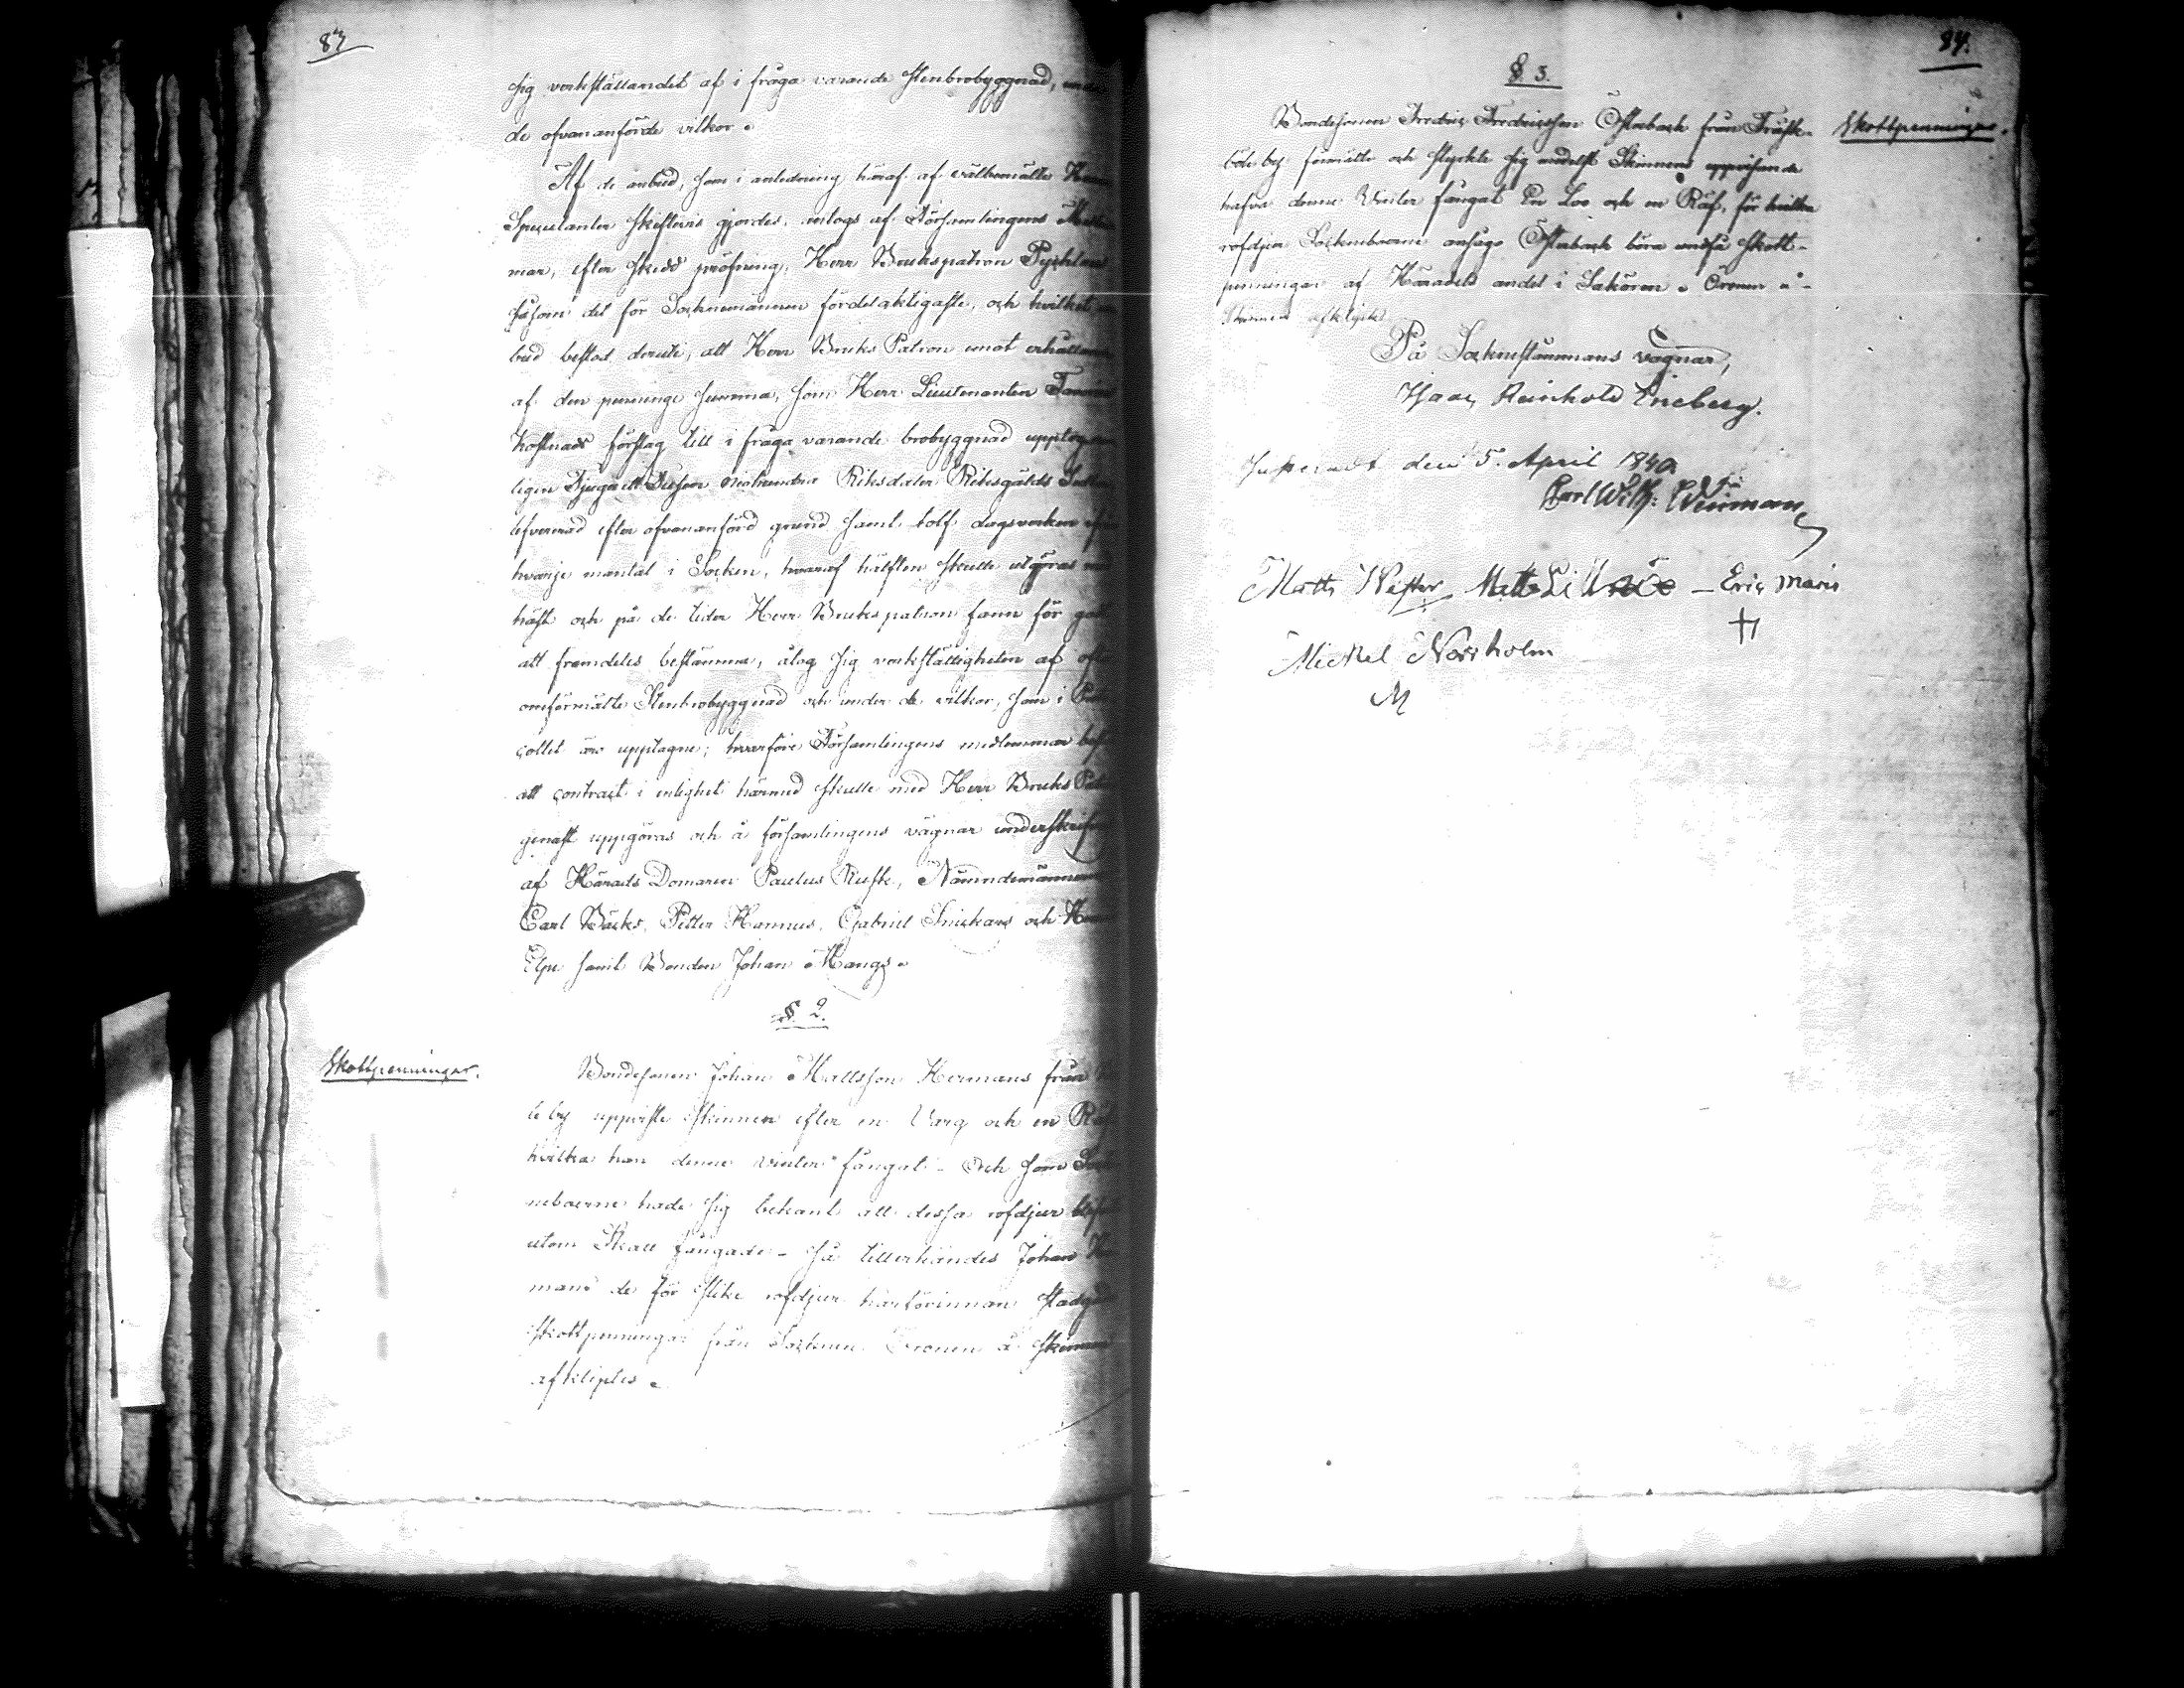 83
sig verkställandet af i fråga varande stenbrobyggnad, under
de ofvananförde vilkor.
Af de anbud, som i anledning häraf af välbemälte Herrar
Spekulanter skiftevis gjordes, antogs af Församlingens
mar, efter skedd pröfning, Herr Brukspatron
såsom det för Socknemännen fördelaktigaste, och hvilket an
bud bestod deruti, att Herr Bruks Patron emot erhållande
af den penninge summa, som Herr Lieutenanten
kostnads förslag till i fråga varande brobyggnad upptog
ligen Tjugoett Tusen Riksdaler Riksgälds
lefvererad efter ofvananförd grund samt tolf dagsverken
hvarje mantal i Socken, hvaraf hälften skulle utgöras med
häst och på de tider Herr Brukspatron fann för godt
att framdeles bestämma, åtog sig verkställigheten af ofta
omförmälte Stenbrobyggnad och under de vilkor, som i Proto
collet äro upptagne; hvarföre Församlingens medlemmar
att contract i enlighet härmed skulle med Herr Bruks Patron
genast uppgöras och å församlingens vägnar underskrifvas
af Härads Domaren Paulus Rusk, Nämndemännen
Carl Bäcks, Petter Hannus, Gabriel Snickars och
Elge samt Bonden Johan Mangs.
§. 2.
Skottpenningar.
Bondesonen Johan Mattsson Hermans från
le by uppviste skinnen efter en Varg och en Räf
hvilka han denne vinter fångat. Och som Sock
neboerne hade sig bekant att dessa rofdjur blifvit
utom Skall fångade – så tillerkändes Johan Her
mans de för slike rofdjur härförinnan stadgade
skottpenningar från Socknen. Öronen å skinnen
afkliptes.
84.
§. 3.
Skottpenningar.
Bondesonen Fredric Fredricsson Österback från Träsk-
böle by förmälte och styrkte sig medelst Skinnens uppvisande
hafva denne Vinter fångat En Loo och en Räf, för hvilka
rofdjur Sockneboerne ansågo Österback böra undfå skott-
penningar af Häradets andel i Saköron. Öronen å
Skinnen afkliptes.
På Sockenstämmans vägnar,
Isaac Reinhold Eneberg.
Justeradt den 5. April 1840
Carl Wilh:
Matts Wester Matts Lillråå — Eric Mårs
+
Mickel Norrholm
M